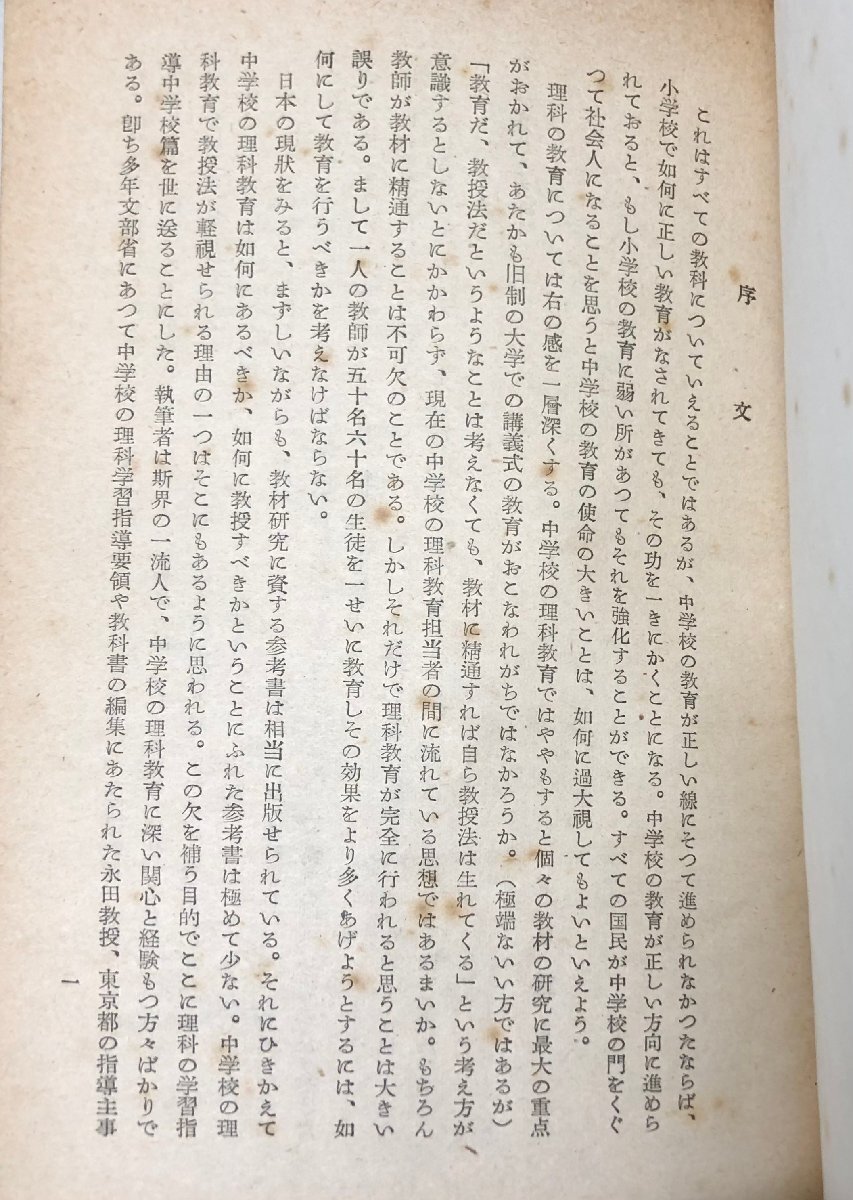 序文
これはすべての教科についていえることではあるが、中学校の教育が正しい線にそつて進められなかつたならば、
小学校で如何に正しい教育がなされてきても、その功を一きにかくことになる。中学校の教育が正しい方向に進めら
れておると、もし小学校の教育に弱い所があつてもそれを強化することができる。すべての国民が中学校の門をくぐ
つて社会人になることを思うと中学校の教育の使命の大きいことは、如何に過大視してもよいといえよう。
理科の教育については右の感を一層深くする。中学校の理科教育ではややもすると個々の教材の研究に最大の重点
がおかれて、あたかも旧制の大学での講義式の教育がおこなわれがちではなかろうか。（極端ないい方ではあるが）
「教育だ、教授法だというようなことは考えなくても、教材に精通すれば自ら教授法は生れてくる」という考え方が
意識するとしないとにかかわらず、現在の中学校の理科教育担当者の間に流れている思想ではあるまいか。もちろん
教師が教材に精通することは不可欠のことである。しかしそれだけで理科教育が完全に行われると思うことは大きい
誤りである。まして一人の教師が五十名六十名の生徒を一せいに教育しその効果をより多くあげようとするには、如
何にして教育を行うべきかを考えなけばならない。
日本の現狀をみると、まずしいながらも、教材研究に資する参考書は相当に出版せられている。それにひきかえて
中学校の理科教育は如何にあるべきか、如何に教授すべきかということにふれた参考書は極めて少ない。中学校の理
科教育で教授法が軽視せられる理由の一つはそこにもあるように思われる。この欠を補う目的でここに理科の学習指
導中学校篇を世に送ることにした。執筆者は斯界の一流人で、中学校の理科教育に深い関心と経験もつ方々ばかりで
ある。卽ち多年文部省にあつて中学校の理科学習指導要領や教科書の編集にあたられた永田教授、東京都の指導主事
一